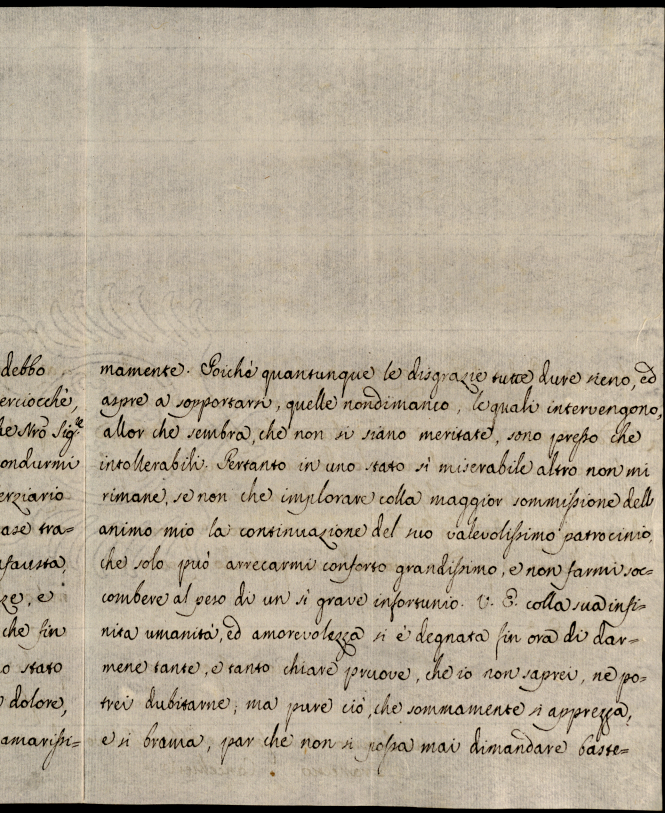 debbo
erciocchè,
he Nrō Sig.re
ondurmi
erziario
ase tra=
nfausta,
ze, e
che fin
o stato
dolore,
amarissi=
mamente. Poiché quantunque le disgrazie tutte dure sieno, ed
aspre a sopportarsi, quelle nondimanco, le quali intervengono,
allor che sembra, che non si siano meritate, sono presso che
intollerabili. Pertanto in uno stato sì miserabile altro non mi
rimane, se non che implorare colla maggior sommissione dell
animo mio la continuazione del suo valevolissimo patrocinio,
che solo può arrecarmi conforto grandissimo, e non farmi soc=
combere al peso di un sì grave infortunio. V. E. colla sua infi=
nita umanità, ed amorevolezza si è degnata fin ora di dar=
mene tante, e tanto chiare pruove, che io non saprei, ne po=
trei dubitarne; ma pure ciò, che sommamente si apprezza,
e si brama, par che non si possa mai dimandare baste=